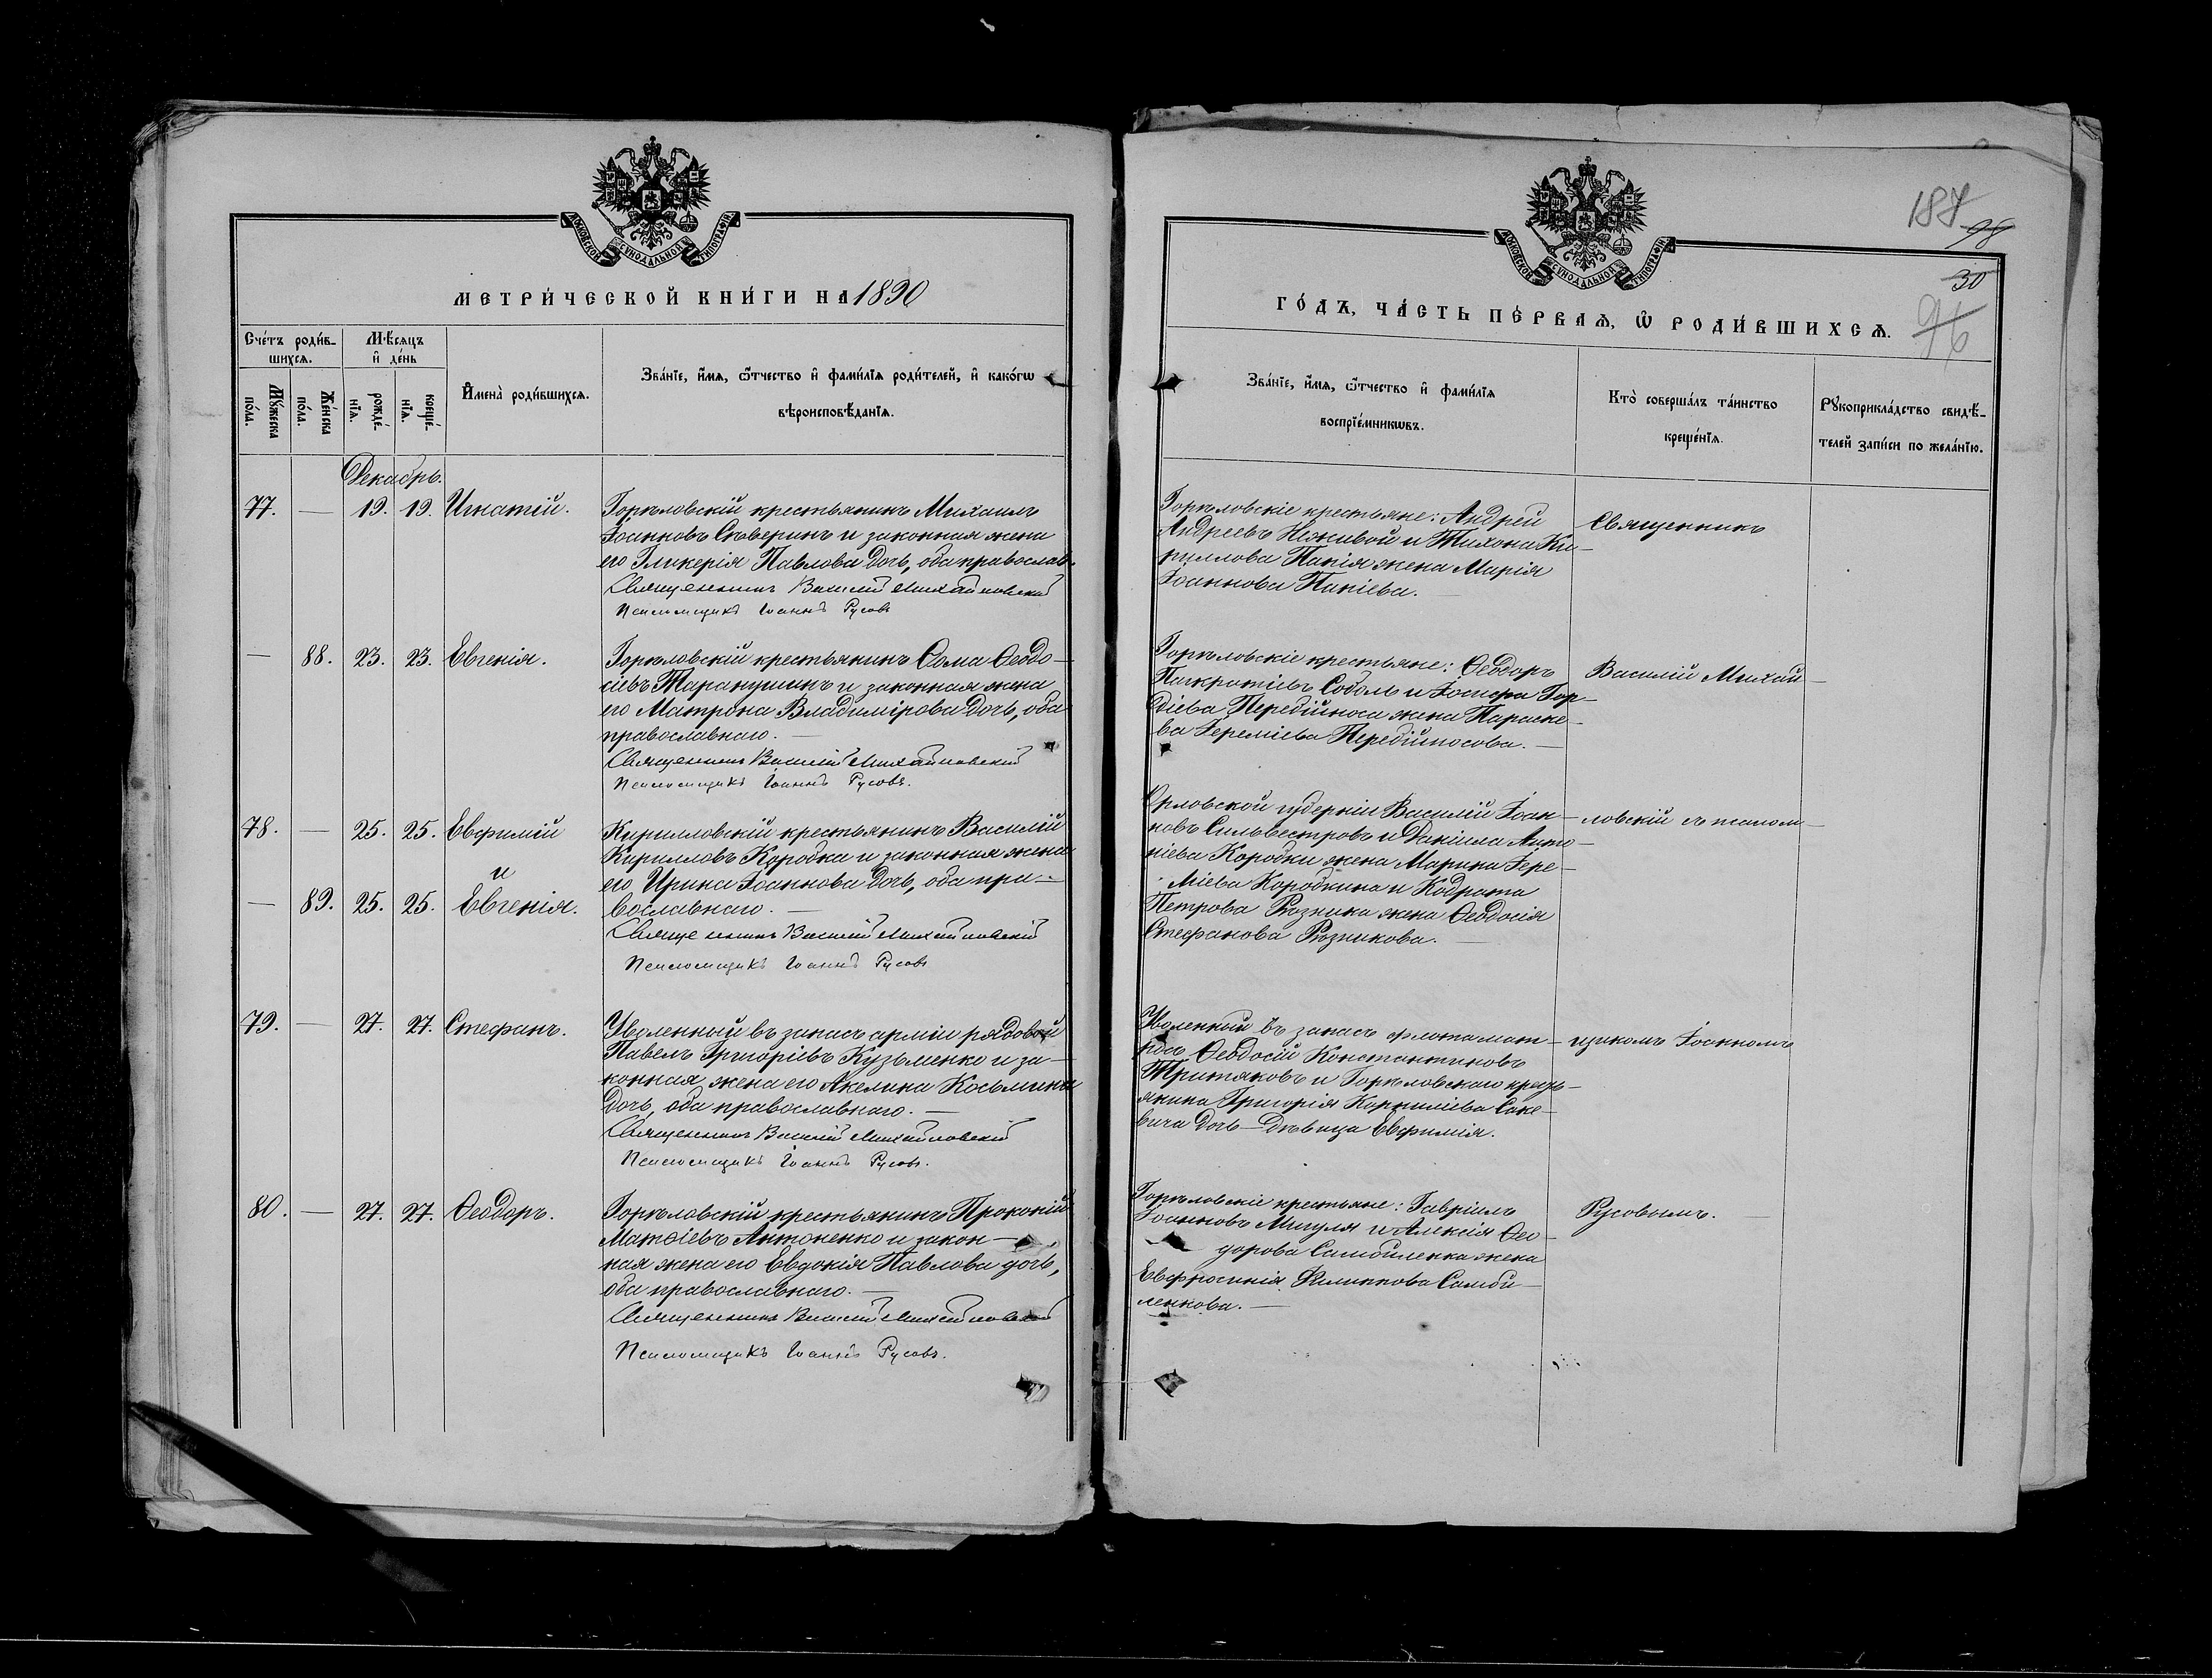 МОСКОВСКОЙ СУНОДАЛЬНОЙ ТИПОГРАФІИ
МЕТРИ́ЧЕСКОЙ КНИ́ГИ НА 1890
Сче́тъ роди́в-
шихся.
Мѣ́сяцъ
и҆ де́нь
Мꙋ́жеска
по́ла.
Же́нска
по́ла.
рожде́-
нїя.
креще́-
нїя.
И҆мена̀ роди́вшихся.
Зва́нїе, и҆́мя, ѻ҆́тчество и҆ фами́лїя роди́телей, и҆ како́гѡ
вѣроисповѣ́данїя.
Декабрь.
77. — 19. 19. Игнатій.
Горѣловскій крестьянинъ Михаилъ
Іоанновъ Скверинъ и законная жена
его Гликерія Павлова дочь, оба православ.
Священникъ Василій Михайловскій
Псаломщикъ Іоаннъ Русовъ
— 88. 23. 23. Евгенія.
Горѣловскій крестьянинъ Сома Ѳеодо-
сіевъ Таранушинъ и законная жена
его Матрона Владимірова дочь, оба
православнаго. —
Священникъ Василій Михайловскій
Псаломщикъ Іоаннъ Русовъ.
78. — 25. 25. Евфимій
и
— 89. 25. 25. Евгенія.
Кирилловскій крестьянинъ Василій
Кирилловъ Коробка и законная жена
его Ирина Іоаннова дочь, оба пра-
вославнаго. —
Священникъ Василій Михайловскій
Псаломщикъ Іоаннъ Русовъ
79. — 27. 27. Стефанъ.
Уволенный въ запасъ арміи рядовой
Павелъ Григоріевъ Кузьменко и за-
конная жена его Акелина Косьмина
дочь, оба православнаго. —
Священникъ Василій Михайловскій
Псаломщикъ Іоаннъ Русовъ.
80. — 27. 27. Ѳеодоръ.
Горѣловскій крестьянинъ Прокопій
Матѳіевъ Антоненко и закон-
ная жена его Евдокія Павлова дочь,
оба православнаго. —
Священникъ Василій Михайловскій
Псаломщикъ Іоаннъ Русовъ.
МОСКОВСКОЙ СУНОДАЛЬНОЙ ТИПОГРАФІИ
187
98
30
96
ГО́ДЪ, ЧА́СТЬ ПЕ́РВАЯ, Ѡ҆ РОДИ́ВШИХСЯ.
Зва́нїе, и҆́мя, ѻ҆́тчество и҆ фами́лїя
воспрїе́мникѡвъ.
Кто̀ соверша́лъ та́инство
креще́нїя.
Рꙋкоприкла́дство свидѣ́-
телей за́писи по жела́нїю.
Горѣловскіе крестьяне: Андрей
Андреевъ Неживой и Тихона Ки-
риллова Папія жена Марія
Іоаннова Папіева. —
Священникъ
Горѣловскіе крестьяне: Ѳеодоръ
Панкратіевъ Соболь и Іосифа Гор-
діева Перебійноса жена Параске-
ва Іереміева Перебійносова. —
Василій Михай-
Орловской губерніи Василій Іоан-
новъ Сильвестровъ и Даніила Анто-
ніева Коробки жена Марина Іере-
міева Коробкина и Кодрата
Петрова Рѣзника жена Ѳеодосія
Стефанова Рѣзникова. —
ловскій съ псалом-
Уволенный въ запасъ флота мат-
росъ Ѳеодосій Константиновъ
Третяковъ и Горѣловскаго кресть-
янина Григорія Корниліева Саке-
вича дочь — дѣвица Евфимія.
щикомъ Іоанномъ
Горѣловскіе крестьяне: Гавріилъ
Іоанновъ Мигуля и Алексія Ѳео-
дорова Самойленка жена
Евфросинія Филиппова Самой-
ленкова. —
Русовымъ.